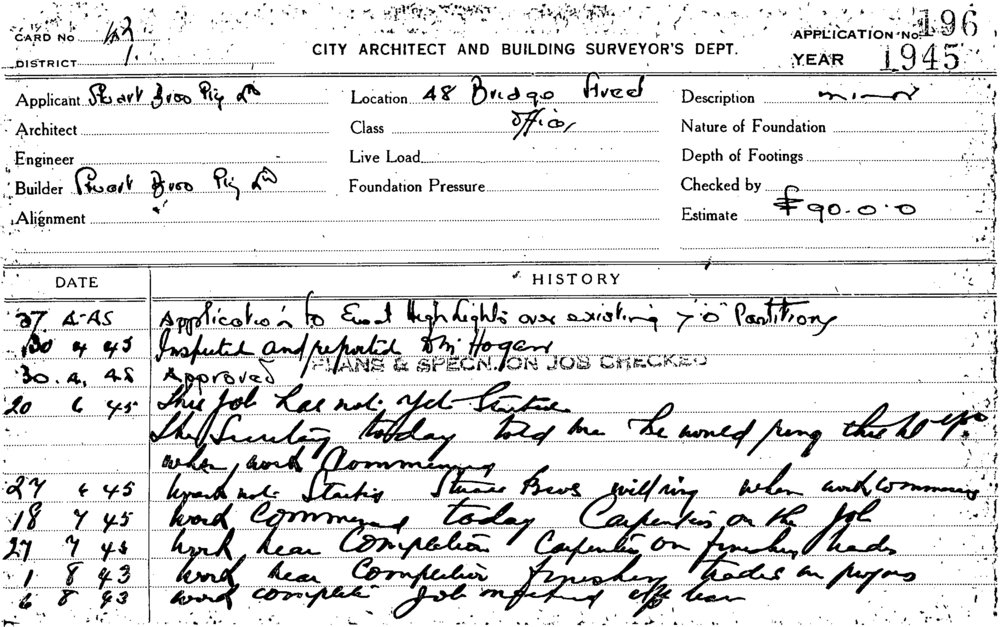 CARD No
DISTRICT 1.
CITY ARCHITECT AND BUILDING SURVEYOR'S DEPT.
APPLICATION No. 196
YEAR 1945
Applicant Stuart Bros Pty Ltd
Location 48 Bridge Street
Description minor
Architect
Class Offices
Nature of Foundation
Engineer
Live Load
Depth of Footings
Builder Stuart Bros Pty Ltd
Foundation Pressure
Checked by
Alignment
Estimate £90.0.0
DATE HISTORY
27. 4. 45 Application to Erect High Lights over existing 7'0" Partitions
30 4 45 Inspected and reported Hogan
30. 4. 45 Approved PLANS & SPECN. ON JOB CHECKED
20 6 45 This Job has not yet Started
The Secretary today told me he would ring this
when work Commences
27 6 45 Work not Started Stuart Bros will ring when work commences
18 7 45 Work Commenced today Carpenters on the Job
27 7 45 Work near Completion Carpenters on finishing trades
1 8 45 Work near Completion finishing trades in progress
6 8 45 Work complete Job